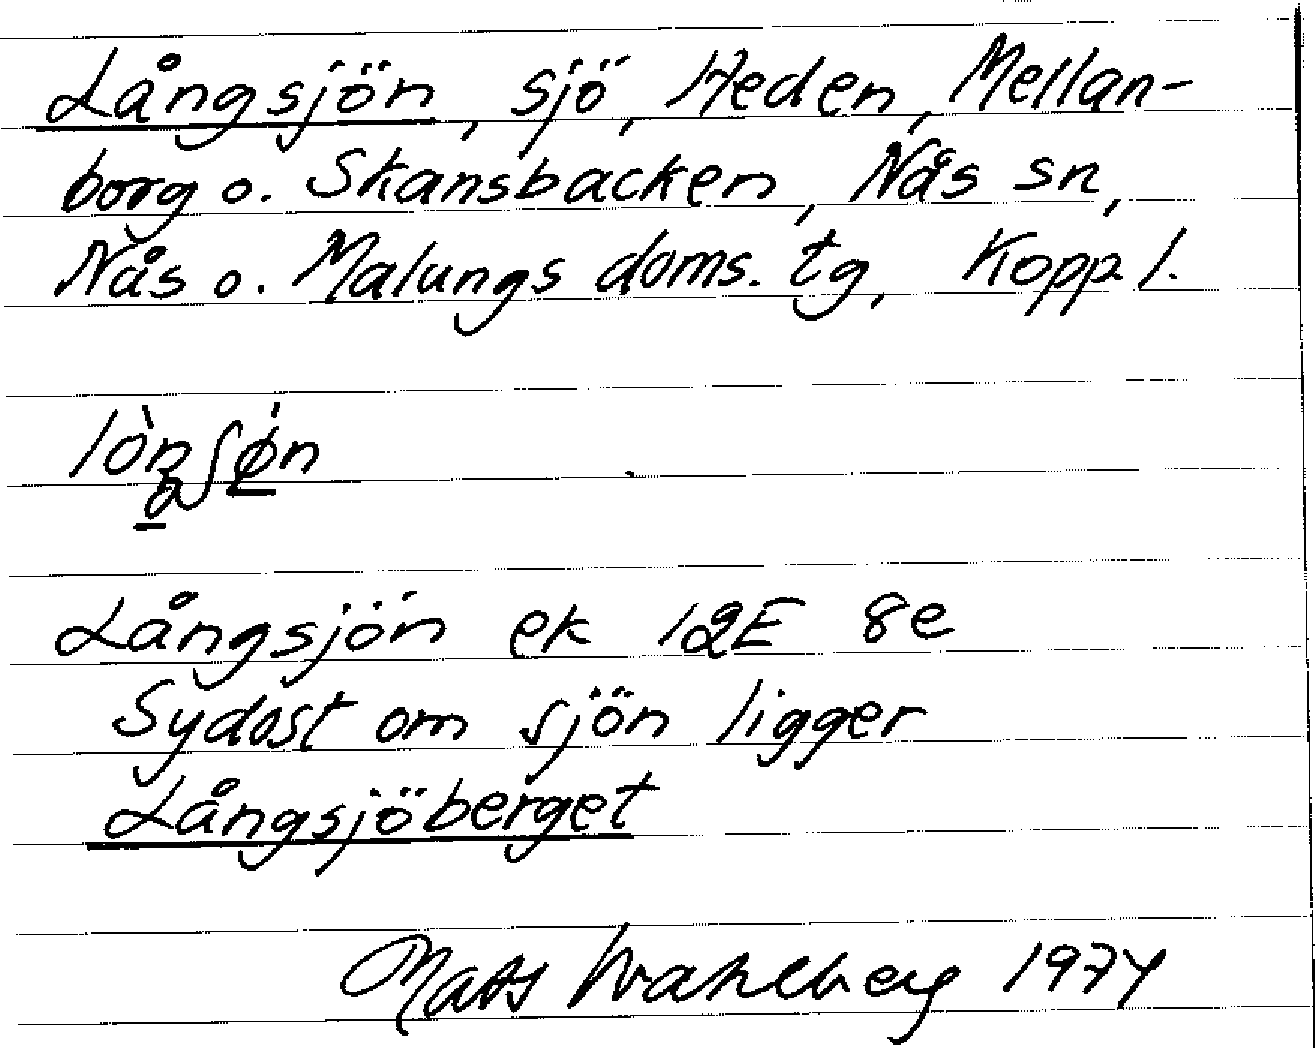 Långsjön, sjö, Heden, Mellan-
borg o. Skansbacken, Nås sn,
Nås o. Malungs doms. tg, Kopp l.
Långsjön ek 12E 8e
Sydost om sjön ligger
Långsjöberget
Mats Wahlberg 1974